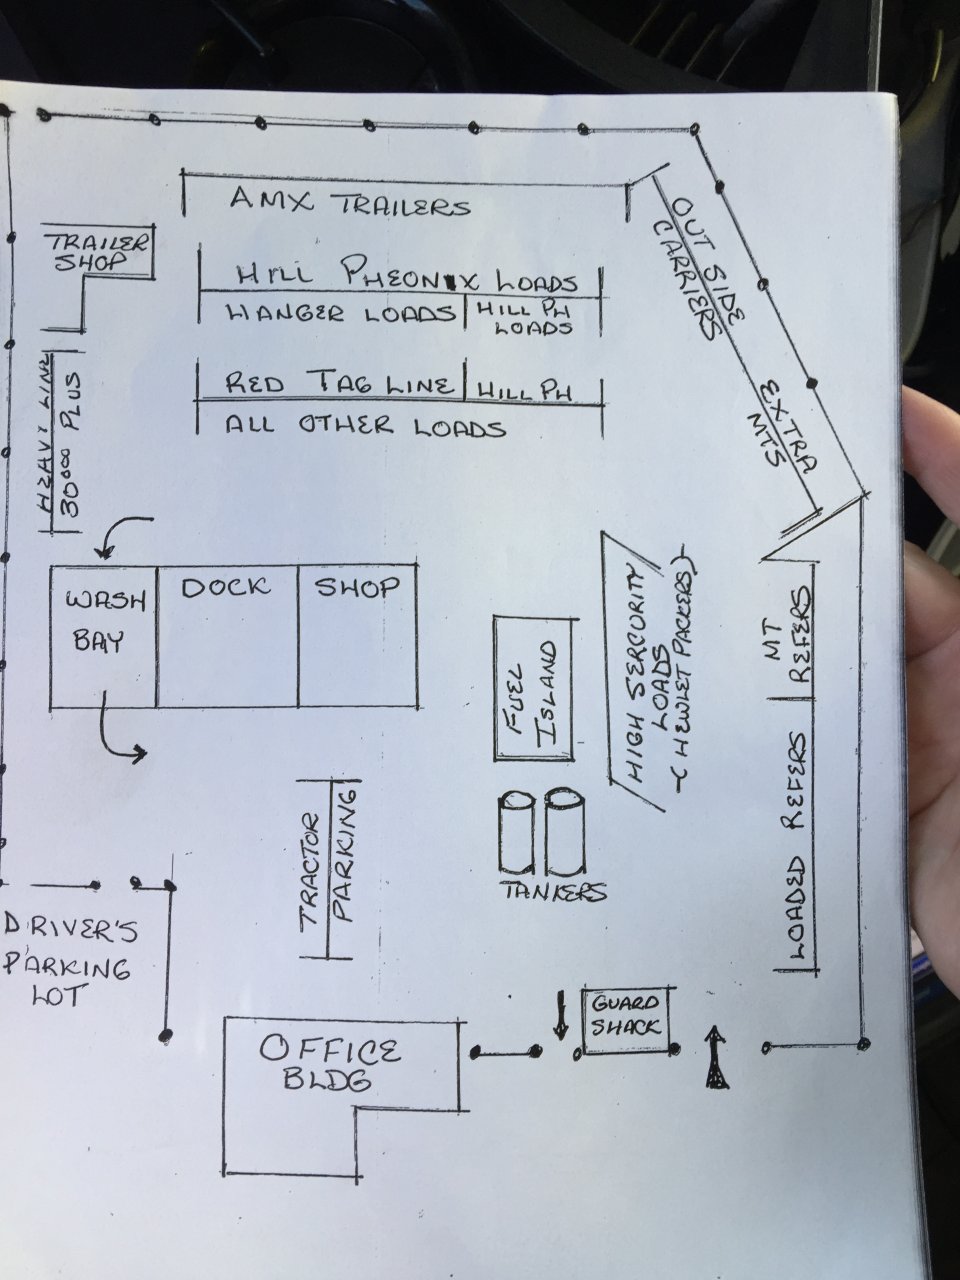 AMX TRAILERS
OUT SIDE
CARRIERS
TRAILER
SHOP
HILL PHEONIX LOADS
HANGER LOADS
HILL PH
LOADS
HEAVY LINE
30000 PLUS
RED TAG LINE
HILL PH
ALL OTHER LOADS
EXTRA
MTS
WASH
BAY
DOCK
SHOP
FUEL
ISLAND
HIGH SERCURITY
LOADS
-(HEWLET PACKERS)-
MT
REFERS
LOADED REFERS
TRACTOR
PARKING
TANKERS
DRIVER'S
PARKING
LOT
OFFICE
BLDG
GUARD
SHACK